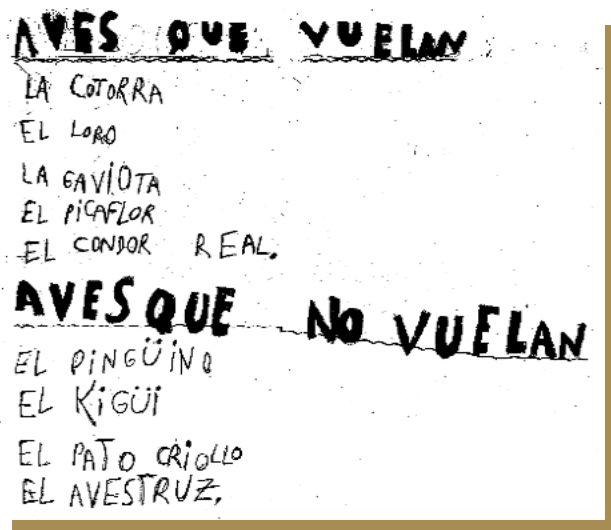 AVES QUE VUELAN
LA COTORRA
EL LORO
LA GAVIOTA
EL PICAFLOR
EL CONDOR REAL.
AVES QUE NO VUELAN
EL PINGÜINO
EL KiGÜI
EL PATO CRIOLLO
EL AVESTRUZ.